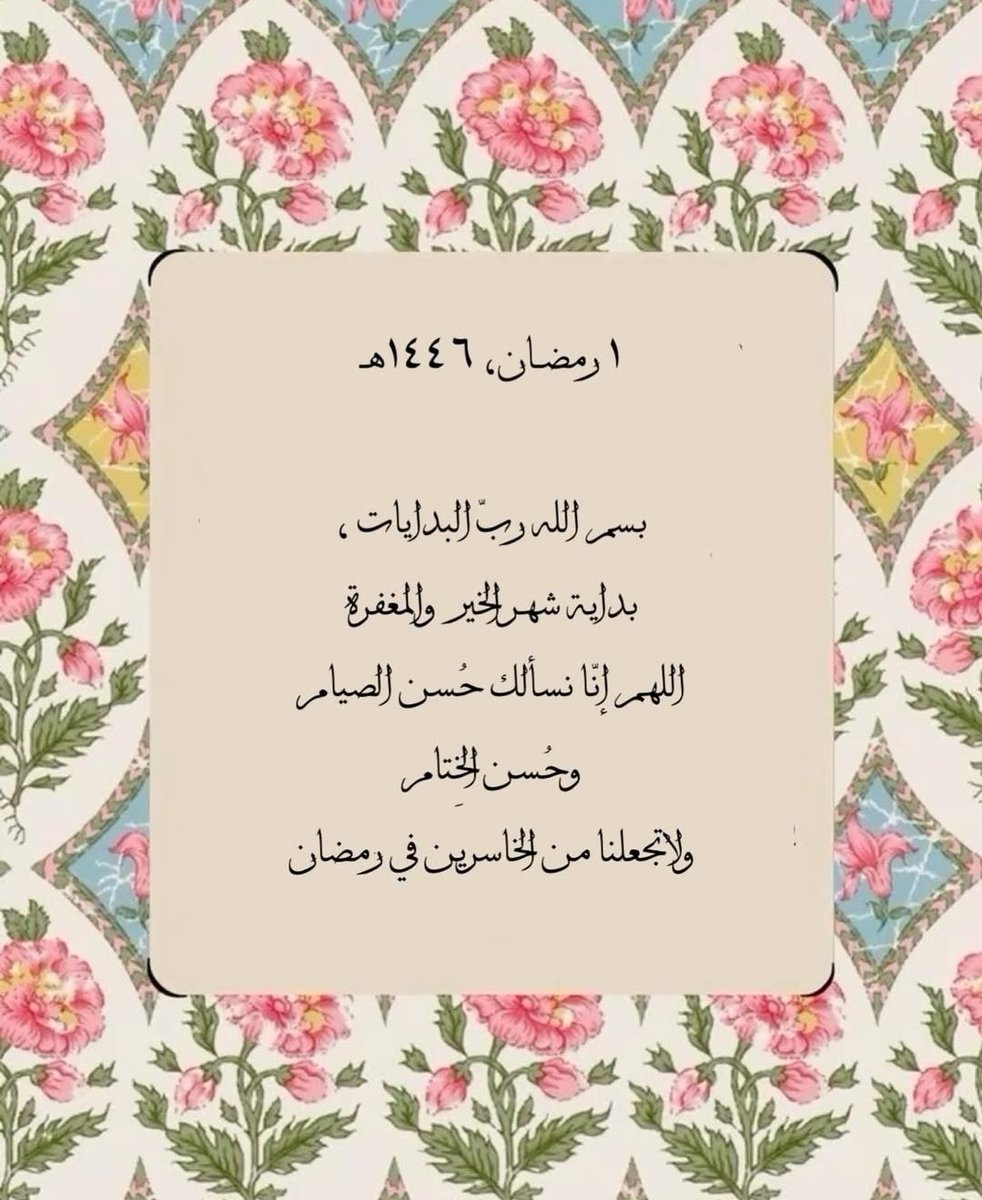 ١ رمضـان، ١٤٤٦هـ
بسم الله ربّ البدايات ،
بداية شهر الخير والمغفرة
اللهم إنّا نسألك حُسن الصيام
وحُسن الخِتام
ولاتجعلنا من الخاسرين في رمضان